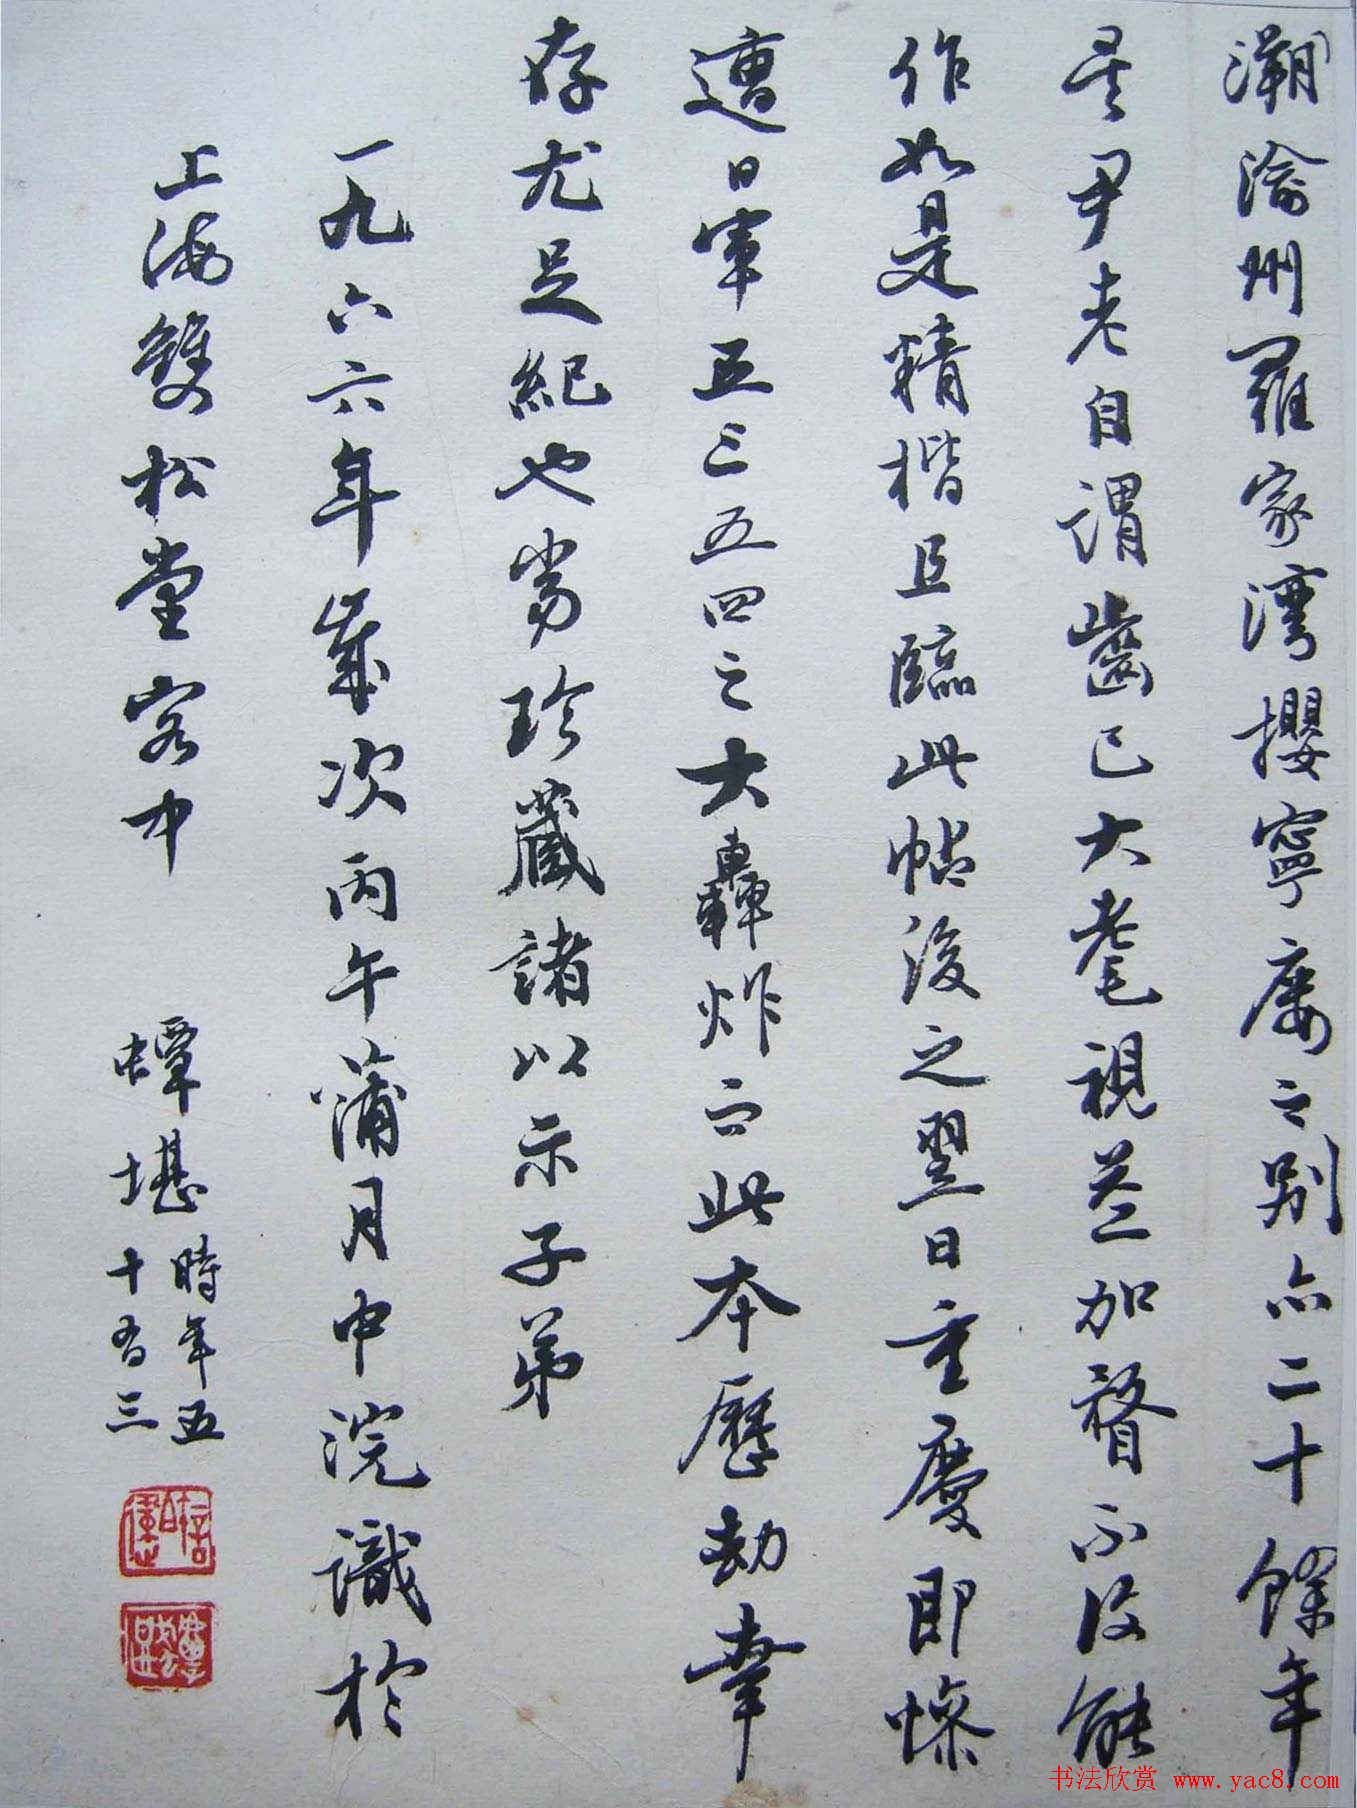 溯渝州羅家灣攖寧廔之別亦二十餘年
矣尹老自謂齒已大耄視益加瞀不復能
作如是精楷且臨此帖後之翌日重慶即慘
遭日軍五三五四之大轟炸而此本歷劫幸
存尤足紀也耑珍藏諸以示子弟
一九六六年歲次丙午蒲月中浣識於
上海雙松堂客中
蟫堪時年五
十有三
书法欣赏 www.yac8.com